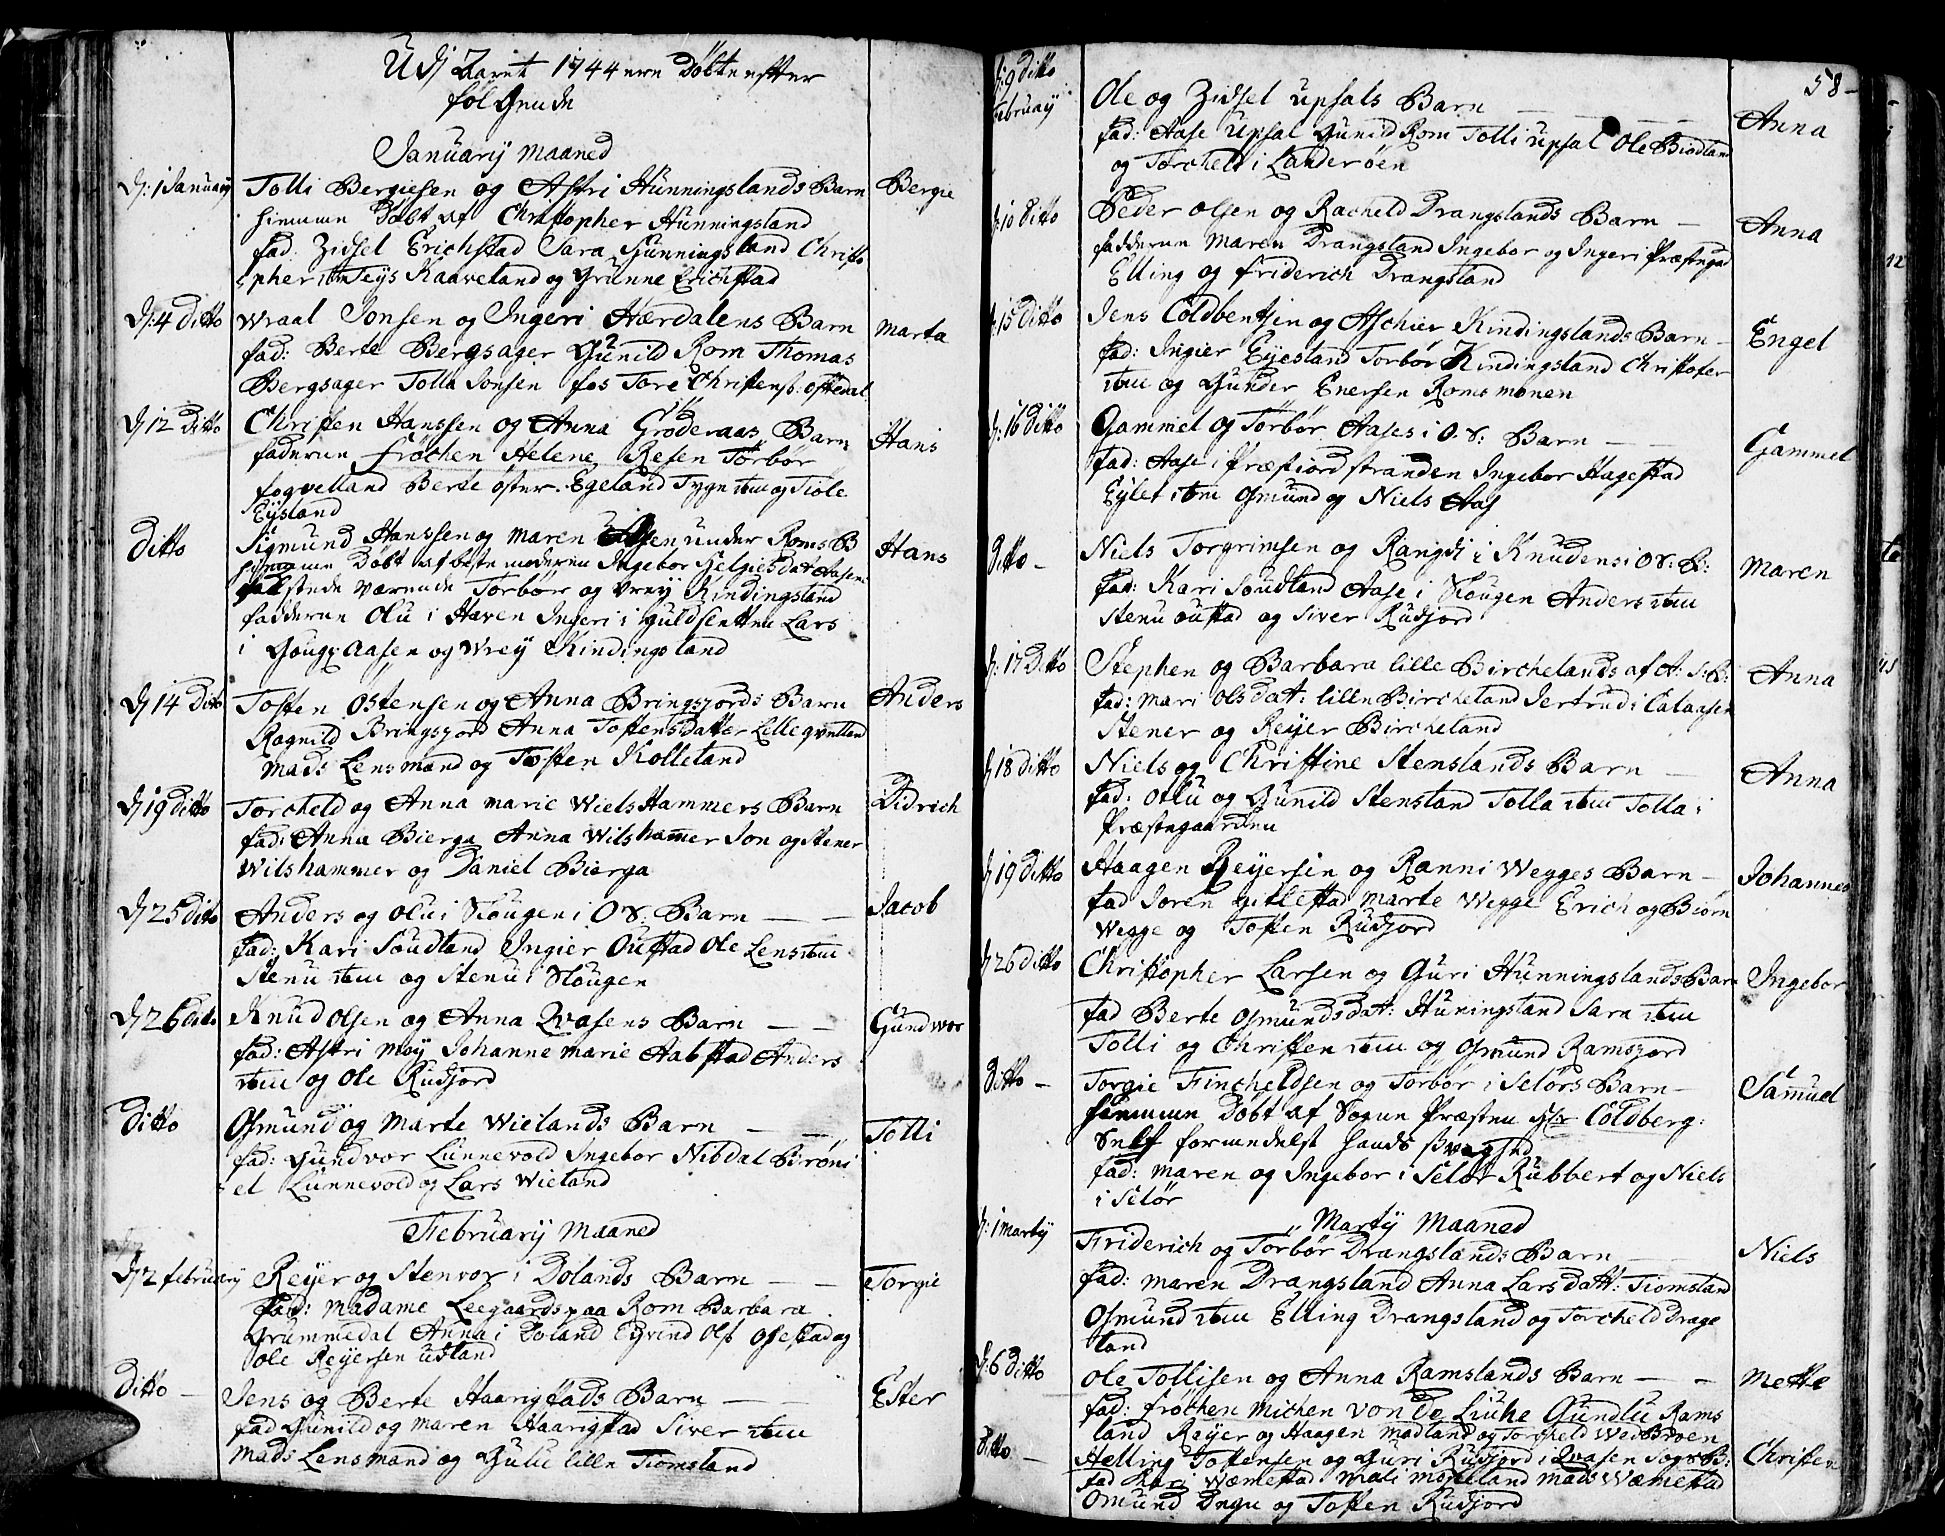 Udj Aaret 1744 ere Döbte effter
fölgende
Januarij Maaned
Dj: 1 Januarij Tolli Bergiesen og Astri Hunningslands Barn Bergie
hiemme Döbt af Christopher Hunningsland
fad: Zidsel Erichstad Sara Hunningsland Christo
pher item Teÿs Kaaveland og Grünne Erichstad
Dj: 4 Ditto Wraal Jonsen og Ingeri Hærdalens Barn Marta
fad: Berte Bergsager Gunild Rom Thomas
Bergsager Tolla Jonsen hos Tore Christensb: Ofstedal
Dj 12 Ditto Christen Hanssen og Anna Gröderaas Barn Hans
faderne Fröchen Helene Resen Törbör
fogvetland Berte öster Egeland Tygn item og Tiöle
Eijsland
Ditto Sigmund Hanssen og Maren under Roms B Hans
hiemme Döbt af beste moderen Ingebor Helgiesdat Aasen
stede værende Torbör og Vreÿ Kindingsland
fadderne Olu i Haven Ingeri i Guldsetten Lars
i Aasen og Wreÿ Kindingsland
Dj 14 Ditto Tosten Östensen og Anna Bringsjords Barn Anders
Ragnild Bringsjord Anna Tostens Datter Lille qvelland
Mads Lensmand og Tosten Kolleland
Dj 19 Ditto Torcheld og Anna Marie Wiels Hammers Barn Didrich
fad: Anna Bierga Anna Wilshammer Jon og Stener
Wilshammer og Daniel Bierga
Dj 25 Ditto Anders og Olu i Skougen i O.S. Barn — — Jacob
fad: Kari Soudland Ingier Oufstad Ole Lens item
Stenu item og Stenu i Skougen
Dj 26 Ditto Knud Olsen og Anna Qvasens Barn — — Gundwor
fad: Astri Moÿ Johanne Marie Aabstad Anders
item og Ole Rudjord
Ditto Osmund og Marte Wielands Barn — — Tolli
fad: Gundvor Lunnevold Ingebor Nibdal Bröni
el Lunnevold og Lars Wieland
Februarij Maaned
Dj 2 februarij Reÿer og Stenvor i Dolands Barn — — Torgie
fad: Madame Leegaards paa Rom Barbara
Grummedal Anna i Doland Eÿvind Ols Ofestad og
Ole Reÿersen Udland
Ditto — Jens og Berte Haarigstads Barn — — Ester
fad Gunild og Maren Haarigstad Siver item
Mads Lensmand og Gulu lille Tiomsland
58
Dj: 9 Ditto
Februarij Ole og Zidsel Upsals Barn — — — Anna
fad: Aase Upsal Gunild Rom Tolli Upsal Ole Biodland
og Torcheld i Landeröen
Dj: 10 Ditto Peder Olsen og Racheld Drangslands Barn — Anna
fadderne Maren Drangsland Ingebor og Ingeri Præstegd
Elling og Friderich Drangsland
Dj: 15 Ditto Jens Coldbentsin og Aschier Kindingslands Barn — Engel
fad: Ingier Eÿesland Torbör Kindingsland Christofer
item og Gunder Enersen Roms monen
Dj: 16 Ditto Gammel og Törbör Aases i O.S: Barn — — Gammel
fad: Aase i Præstiordstranden Ingebor Hagestad
Eÿlet item Osmund og Niels Aas
Ditto — Niels Torgrimsen og Rangdi i Knudens i O.S: B: Maren
fad: Kari Soudland Aase i Skougen Anders item
Stenu Oufstad og Siver Rudjord
Dj: 17 Ditto Stephen og Barbara lille Birchelands af A: S: B: Anna
fad: Mari Olsdat: lille Bircheland Jertrud i Calaasen
Stener og Reÿer Bircheland
Dj 18 Ditto Niels og Christine Stenslands Barn — Anna
fad: Ollu og Gunild Stensland Tolla item Tolla i
Præstegaarden
Dj 19 Ditto Haagen Reÿersen og Ranni Wegges Barn — Johannes
fad Soren Gitlestad Marte Wegge Erich og Biörn
Wegge og Tosten Rudjord
Dj 26 Ditto Christopher Larsen og Guri Hunningslands Barn Ingebor
fad Berte Osmundsdat: Huningsland Sara item
Tolli og Christen item og Osmund Ramsjord
Ditto — Torgie Fincheldsen og Torbör i Selörs Barn — Samuel
hiemme Döbt af Sogne Præsten Hr Coldberg:
Self formedelst hands svaghed
fad: Maren og Ingebor i Selör Rubbert og Niels
i Selör
Martij Maaned
Dj: 1 Martij Friderich og Törbör Drangslands Barn — Niels
fad: Maren Drangsland Anna Larsdatt: Tiomsland
Osmund item Elling Drangsland og Torcheld Drage
land
Dj: 6 Ditto Ole Tollisen og Anna Ramslands Barn — — Mette
fad: fröchen Michen Von De Luhe Gundlu Rams
land Reÿer og Haagen Madland og Torcheld Wed Broen
Ditto — Helling Tostensen og Guri Rudjord i Qvasen Sogs B: Christen
fad Kari Wæmestad Mali Moseland Mads Wæmestad
Omund og Tosten Rudjord